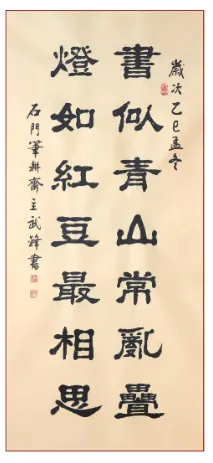 歲次乙巳孟冬
書似青山常亂疊
燈如紅豆最相思
石門筆耕齋主武鋒書